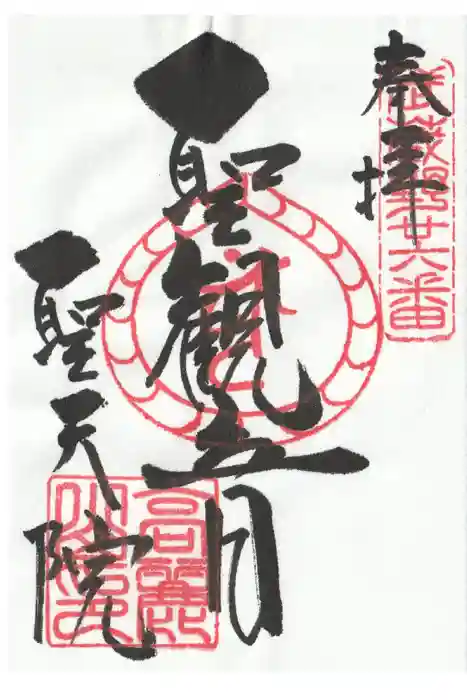 奉拝
武蔵野廿六番
聖観音
聖天院
高麗